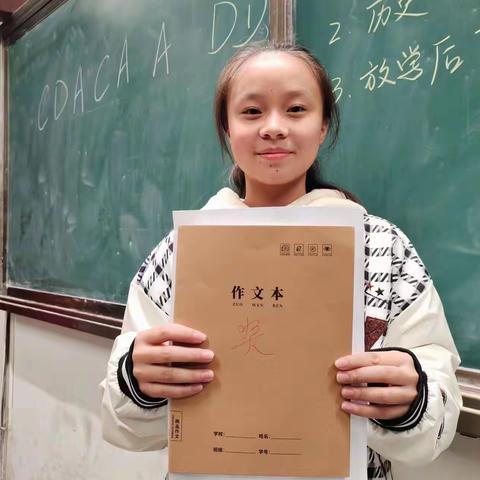 CDACA A
D
2. 历史
3. 放学后
作文本
ZUO WEN BEN
奖
学校:
姓名:
班级:
学号:
精品作文